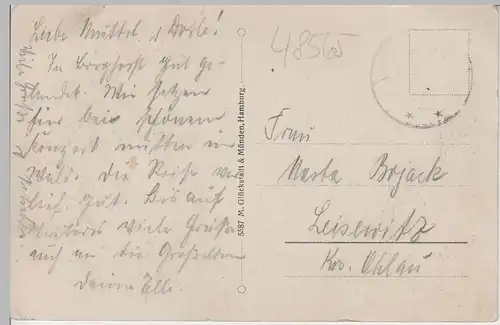 Liebe Muttel u Dorle!
In Borghorst gut ge-
landet. Wir sitzen
hier bei schönem
Konzert mitten im
Wald. Die Reise ver-
lief gut. Bis auf
Weiteres viele Grüße
auch an die Großeltern
Deine Elli.
5587 M. Glückstadt & Münden, Hamburg.
48565
Frau
Marta Bojack
Leisewitz
Krs. Ohlau